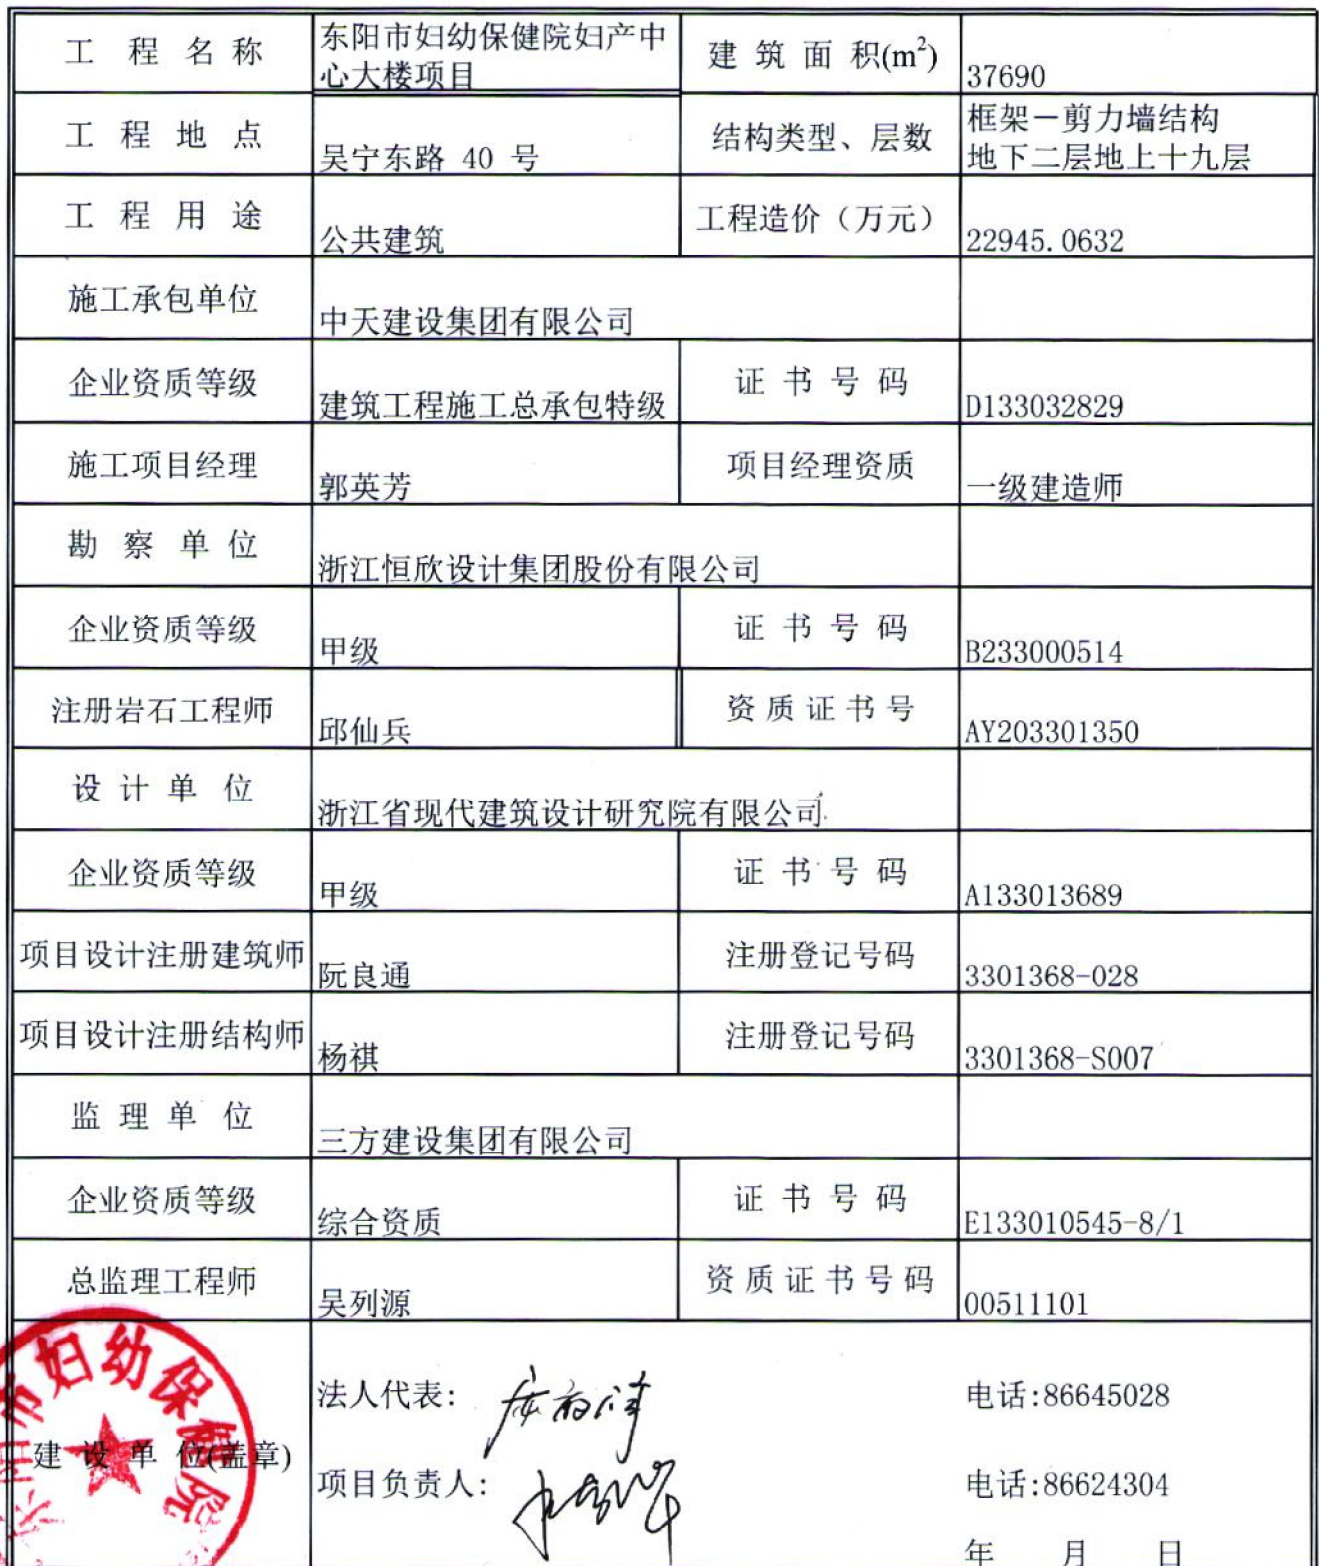 工 程 名 称
东阳市妇幼保健院妇产中
心大楼项目
建 筑 面 积(m²)
37690
工 程 地 点
吴宁东路 40 号
结构类型、层数
框架－剪力墙结构
地下二层地上十九层
工 程 用 途
公共建筑
工程造价（万元）
22945.0632
施工承包单位
中天建设集团有限公司
企业资质等级
建筑工程施工总承包特级
证 书 号 码
D133032829
施工项目经理
郭英芳
项目经理资质
一级建造师
勘 察 单 位
浙江恒欣设计集团股份有限公司
企业资质等级
甲级
证 书 号 码
B233000514
注册岩石工程师
邱仙兵
资 质 证 书 号
AY203301350
设 计 单 位
浙江省现代建筑设计研究院有限公司
企业资质等级
甲级
证 书 号 码
A133013689
项目设计注册建筑师
阮良通
注册登记号码
3301368-028
项目设计注册结构师
杨祺
注册登记号码
3301368-S007
监 理 单 位
三方建设集团有限公司
企业资质等级
综合资质
证 书 号 码
E133010545-8/1
总监理工程师
吴列源
资 质 证 书 号 码
00511101
东阳市妇幼保健院
建 设 单 位(盖章)
法人代表:
电话:86645028
项目负责人:
电话:86624304
年 月 日